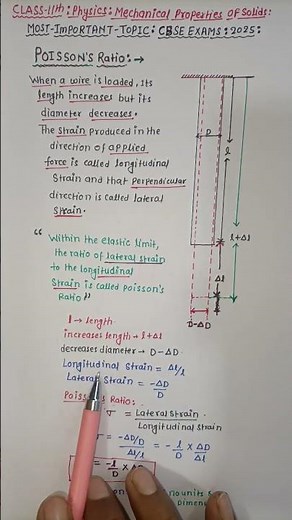 CLASS-11th: Physics: Mechanical Properties Of Solids:
MOST-IMPORTANT-TOPIC: CBSE EXAMS: 2025:
POISSON'S RATIO:→
When a wire is loaded, its
length increases but its
diameter decreases.
The strain produced in the
direction of applied
force is called longitudinal
strain and that perpendicular
direction is called lateral
strain.
D
l
l+Δl
Δl
D-ΔD
"Within the elastic limit,
the ratio of lateral strain
to the longitudinal
strain is called poisson's
Ratio"
l → length
increases length → l+Δl
decreases diameter → D-ΔD
Longitudinal Strain = Δl/l
Lateral Strain = -ΔD/D
Ratio:
σ = Lateral Strain / Longitudinal Strain
= -ΔD/D / Δl/l = -l/D × ΔD/Δl
= -l/D ×
no units